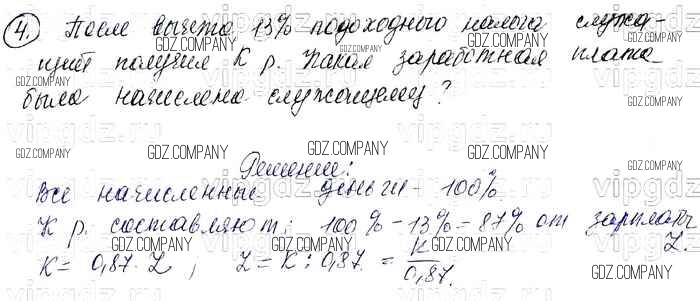 4. После вычета 13% подоходного налога служа-
щий получил К р. Какая заработная плата
была начислена служащему?
Решение:
Все начисленные деньги - 100%.
К р. составляют: 100% - 13% = 87% от зарплаты Z.
К = 0,87 · Z ; Z = К : 0,87 = К/0,87.
GDZ.COMPANY
vipgdz.ru